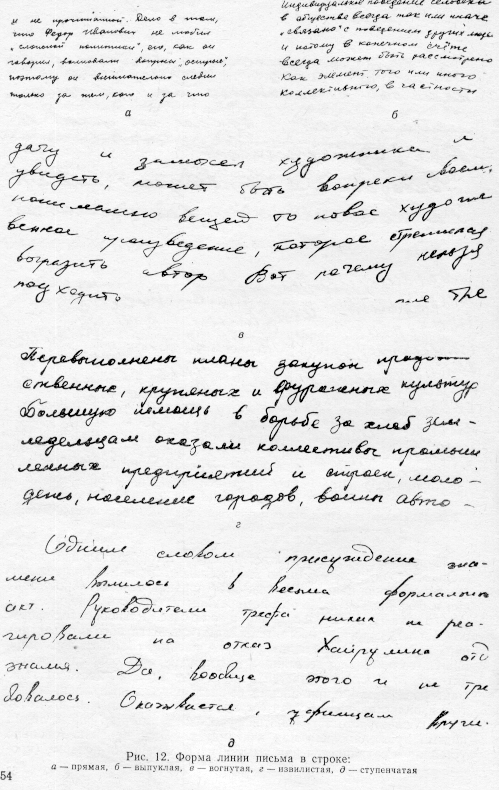 и не прочитанной. Дело в том,
что Федор Иванович не любил
"сложной политики", его, как он
говорил, волновали вопросы "острые",
поэтому он внимательно следил
только за тем, кого и за что
а
Индивидуальное поведение человека
в обществе всегда так или иначе
"связано" с поведением других людей
и потому в конечном счёте
всегда может быть рассмотрено
как элемент того или иного
коллективного, в частности
б
дачу и замысел художника и
увидеть, может быть вопреки своему
пониманию вещей то новое художе
венное произведение, которое стремился
выразить автор Вот почему нельзя
подходить тре
в
Перевыполнены планы закупок продо
ственных, крупяных и фуражных культур
Большую помощь в борьбе за хлеб зем-
ледельцам оказали коллективы промыш
ленных предприятий и строек, моло-
дежь, население городов, воины авто-
г
Одним словом присуждение зна-
мени вылилось в весьма формальный
акт. Руководители треста никак не реа-
гировали на отказ Хайрулина от
знамя. Да, вообще этого и не тре
бовалось. Оказывается, вруче
д
Рис. 12. Форма линии письма в строке:
а — прямая, б — выпуклая, в — вогнутая, г — извилистая, д — ступенчатая
54